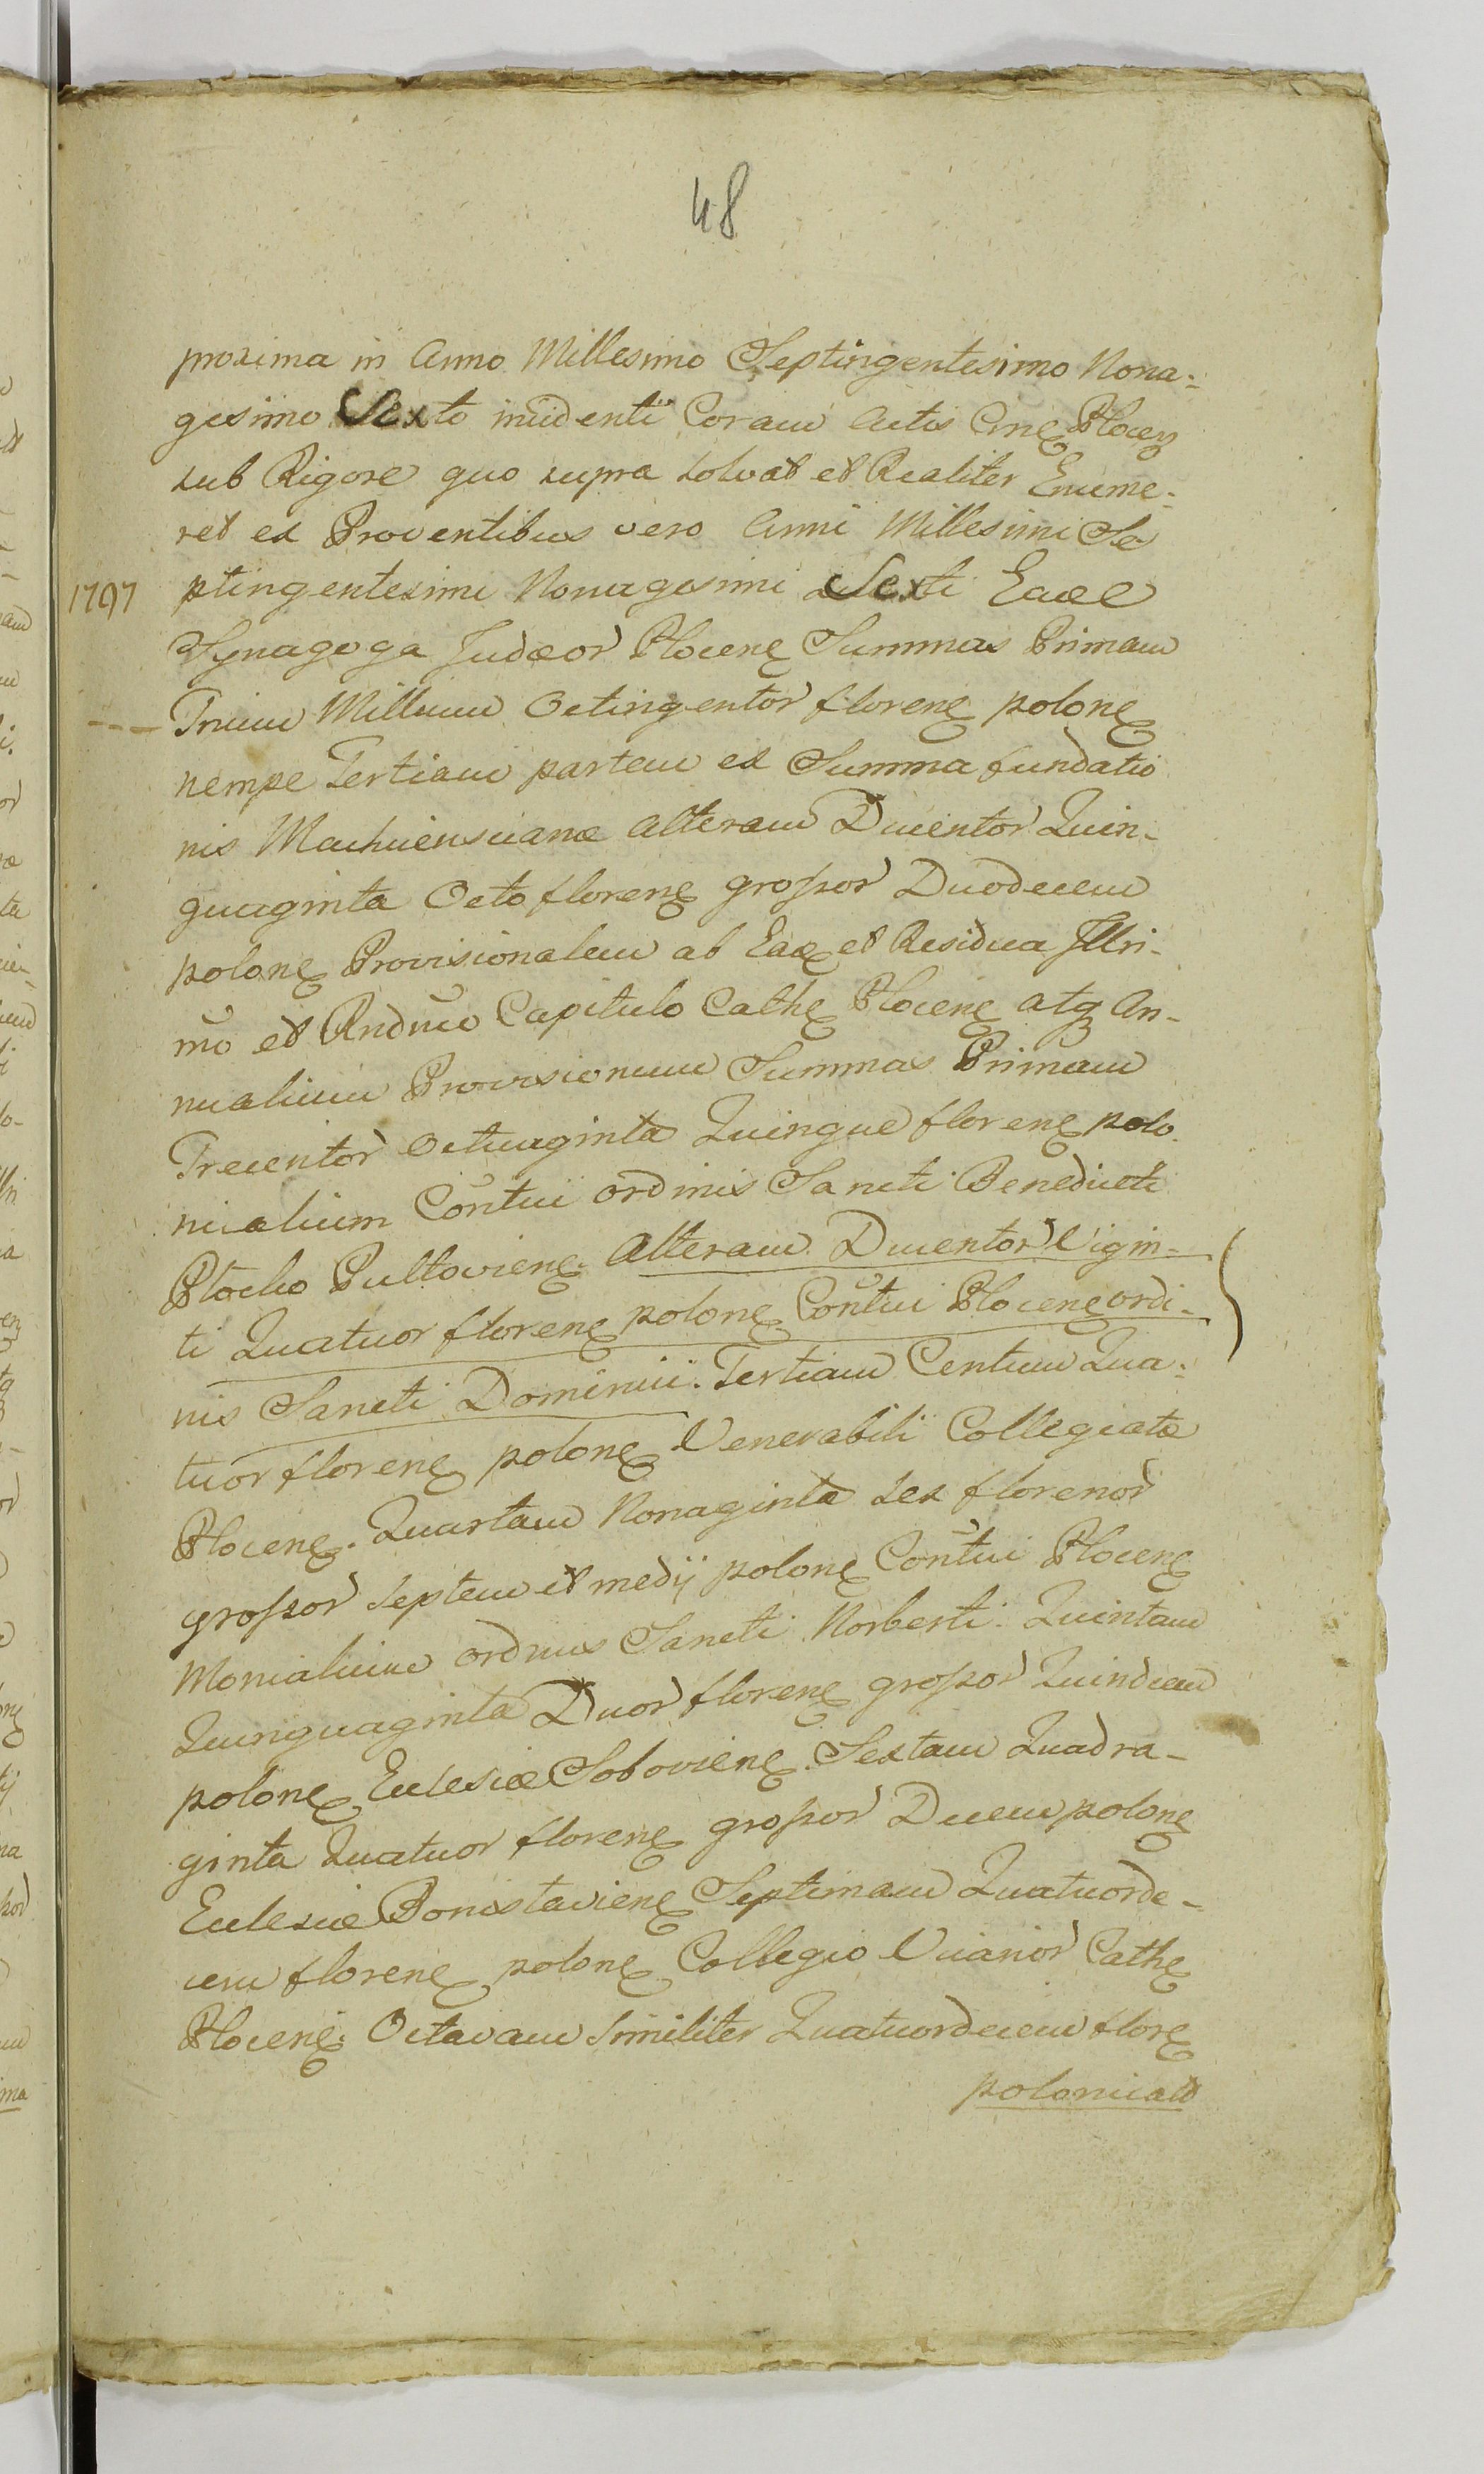 48
proxima in Anno Millesimo Septingentesimo Nona-
gesimo Sexto incidenti Coram Actis Cne Plocen
sub Rigore quo supra solvat et Realiter Enume-
ret ex Proventibus vero Anni Millesimi Se
1797 ptingentesimi Nonagesimi Sexti Eade
Synagoga Judæor Plocene Summas Primam
--- Trium Millium Octingentor florene polone
nempe Tertiam partem ex Summa fundatio
nis alteram Ducentor Quin-
quaginta Octo florene grossor Duodecem
polone Provisionalem ab Eade et Residua Illri-
mo et Rndmo Capitulo Cathe Plocene atq An-
nualium Provisionum Summas Primam
Trecentor Octuaginta Quinque florene polo
nicalium Contui ordinis Sancti Benedicti
Plocko Pultoviene. Alteram Ducentor Vigin-
ti Quatuor florene polone Contui Plocene ordi-
nis Sancti Dominici. Tertiam Centum Qua-
tuor florene polone Venerabili Collegiatæ
Plocene. Quartam Nonaginta sex florenor
grossor septem et medij polone Contui Plocene
Monialium ordinis Sancti Norberti. Quintam
Quinquaginta Duor florene grossor Quindecem
polone Eclesiæ Soboviene. Sextam Quadra-
ginta Quatuor florene grossor Decem polone
Eclesiæ Bonislaviene Septimam Quatuorde-
cem florene polone Collegio Vicarior Cathe
Plocene. Octavam similiter Quatuordecem flore
polonicat